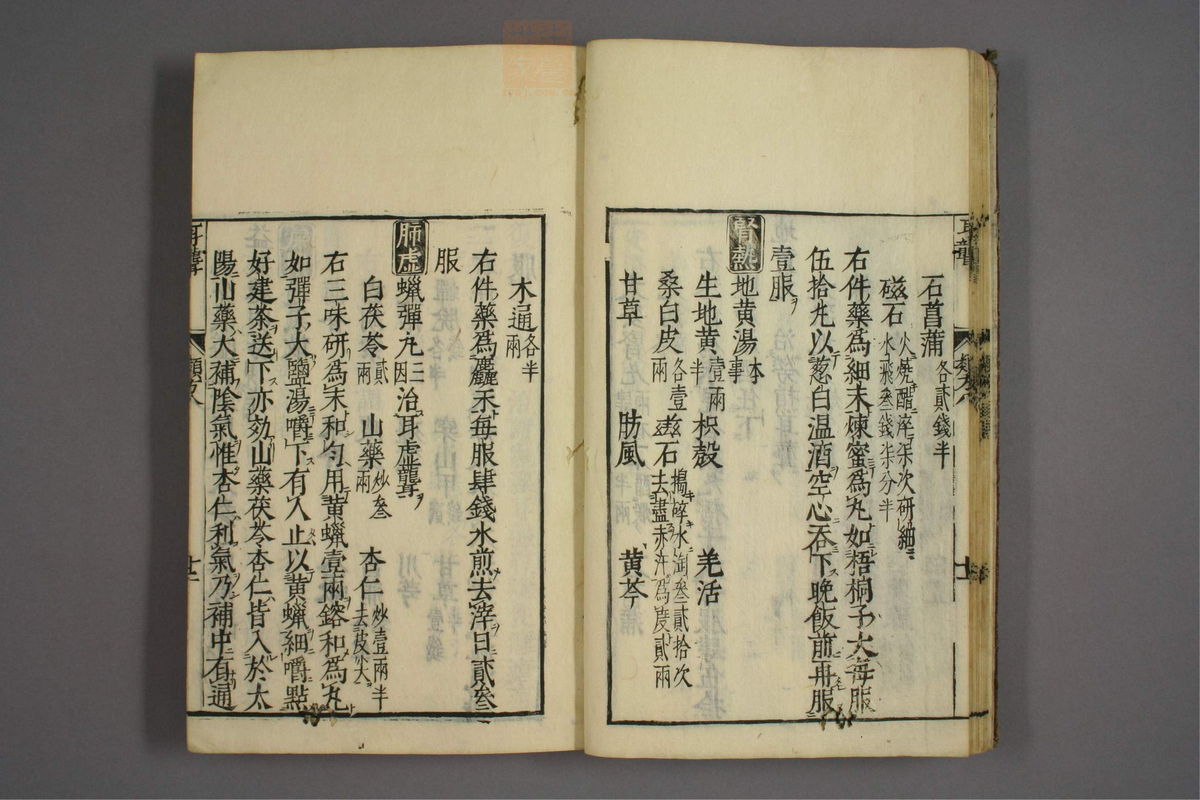 石菖蒲各貳錢半
磁石火燒醋淬柒次研細水飛叁錢柒分半
右件藥為細末煉蜜為丸如梧桐子大每服
伍拾丸以葱白温酒空心吞下晚飯前再服
壹服
腎熱 地黄湯本事
生地黄壹兩半 枳殼 羌活
桑白皮各壹兩 磁石搗碎水淘叁貳拾次去盡赤汁為度貳兩
甘草 防風 黄芩
木通各半兩
右件藥為麤末每服肆錢水煎去滓日貳叁
服
肺虚 蠟彈丸三因治耳虚聾
白茯苓貳兩 山藥炒叁兩 杏仁炒壹兩半去皮尖
右三味研為末和匀用黄蠟壹兩鎔和為丸
如彈子大鹽湯嚼下有人止以黄蠟細嚼點
好建茶送下亦効山藥茯苓杏仁皆入於太
陽山藥大補陰氣惟杏仁利氣乃補中有通
耳聾
類八
十二